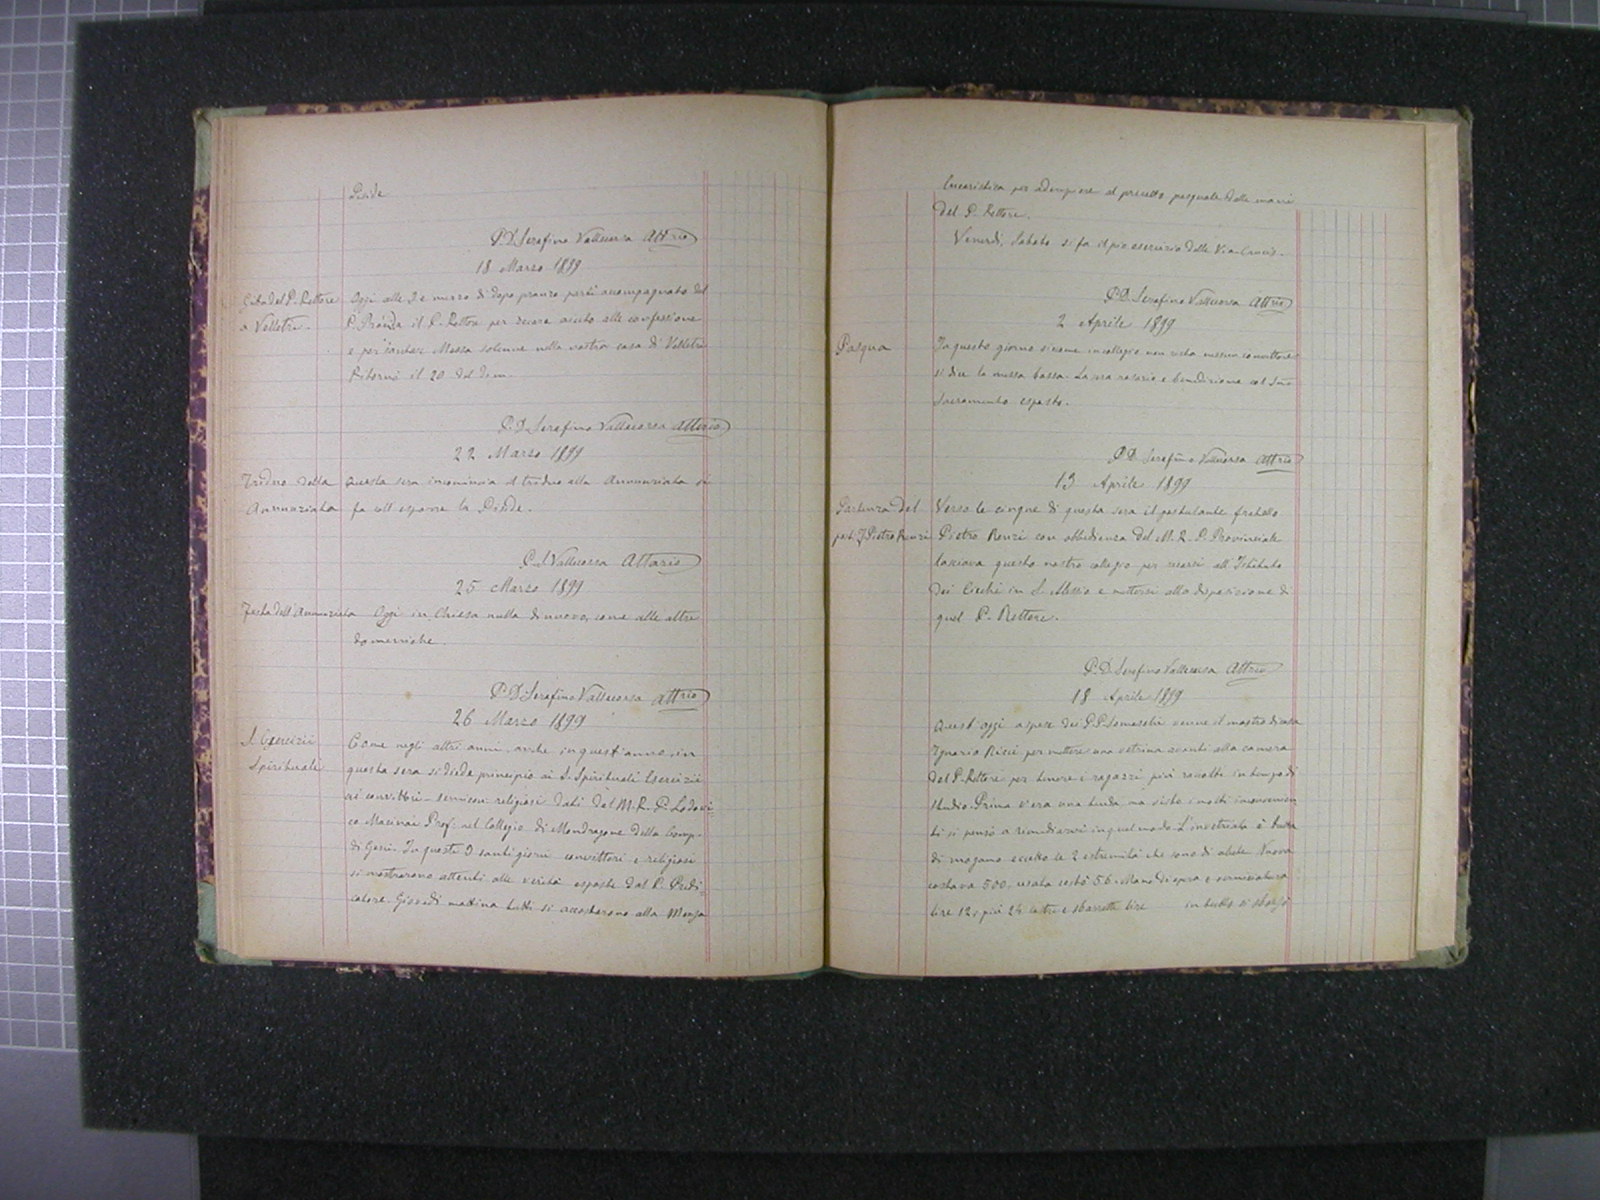 Pisside
P. D. Serafino Vallecorsa Attrio
18 Marzo 1899
Gita del P. Rettore
a Velletri.
Oggi alle 3 e mezzo di dopo pranzo partì accompagnato dal
P. Pronda il P. Rettore per recare aiuto alle confessione
e per cantar Messa solenne nella nostra casa di Velletri
Ritornò il 20 del dem.
P. D. Serafino Vallecorsa Attario
22 Marzo 1899
Triduo della
Annunziata
Questa sera incomincia il triduo alla Annunziata si
fa coll'esporre la Pisside.
P. S. Vallecorsa Attario
25 Marzo 1899
Festa dell'Annunziata
Oggi in Chiesa nulla di nuovo, come alle altre
domeniche.
P. D. Serafino Vallecorsa Attrio
26 Marzo 1899
S. Esercizii
Spirituale
Come negli altri anni, anche in quest'anno, in
questa sera si diede principio ai S. Spirituali Esercizii
ai convittori - semiconv. religiosi dati dal M. R. P. Lodovi=
co Macinai Prof. nel Collegio di Mondragone della Comp.
di Gesù. In questi 3 santi giorni convittori e religiosi
si mostrarono attenti alle verità esposte dal P. Predi=
catore. Giovedì mattina tutti si accostarono alla Mensa
Eucaristica per adempiere al precetto pasquale dalle mani
del P. Rettore.
Venerdì, Sabato si fa il pio esercizio della Via-Crucis.
P. D. Serafino Vallecorsa Attrio
2 Aprile 1899
Pasqua
In questo giorno siccome in collegio non resta nessun convittore
si dice la messa bassa. La sera rosario e benedizione col SSmo
Sacramento esposto.
P. D. Serafino Vallecorsa Attrio
13 Aprile 1899
Partenza del
post. F. Pietro Renzi
Verso le cinque di questa sera il postulante fratello
Pietro Renzi con obbedienza del M. R. P. Provinciale
lasciava questo nostro collegio per recarsi all'Istituto
dei Ciechi in S. Alessio e mettersi alla disposizione di
quel P. Rettore.
P. D. Serafino Vallecorsa Attrio
18 Aprile 1899
Quest'oggi a spese dei P. P. Somaschi venne il mastro di casa
Ignazio Ricci per mettere una vetrina avanti alla camera
del P. Rettore per tenere i ragazzi più raccolti in tempo di
studio. Prima v'era una tenda, ma visto i molti inconvenien
ti si pensò a rimediarvi in quel modo. L'invetriata è tutta
di mogano eccetto le 2 estremità che sono di abete. Nuova
costava 500, usata costò 56. Mano d'opera e verniciatura
lire 12, più 24 lastre e sbarrette lire in tutto si sborsò